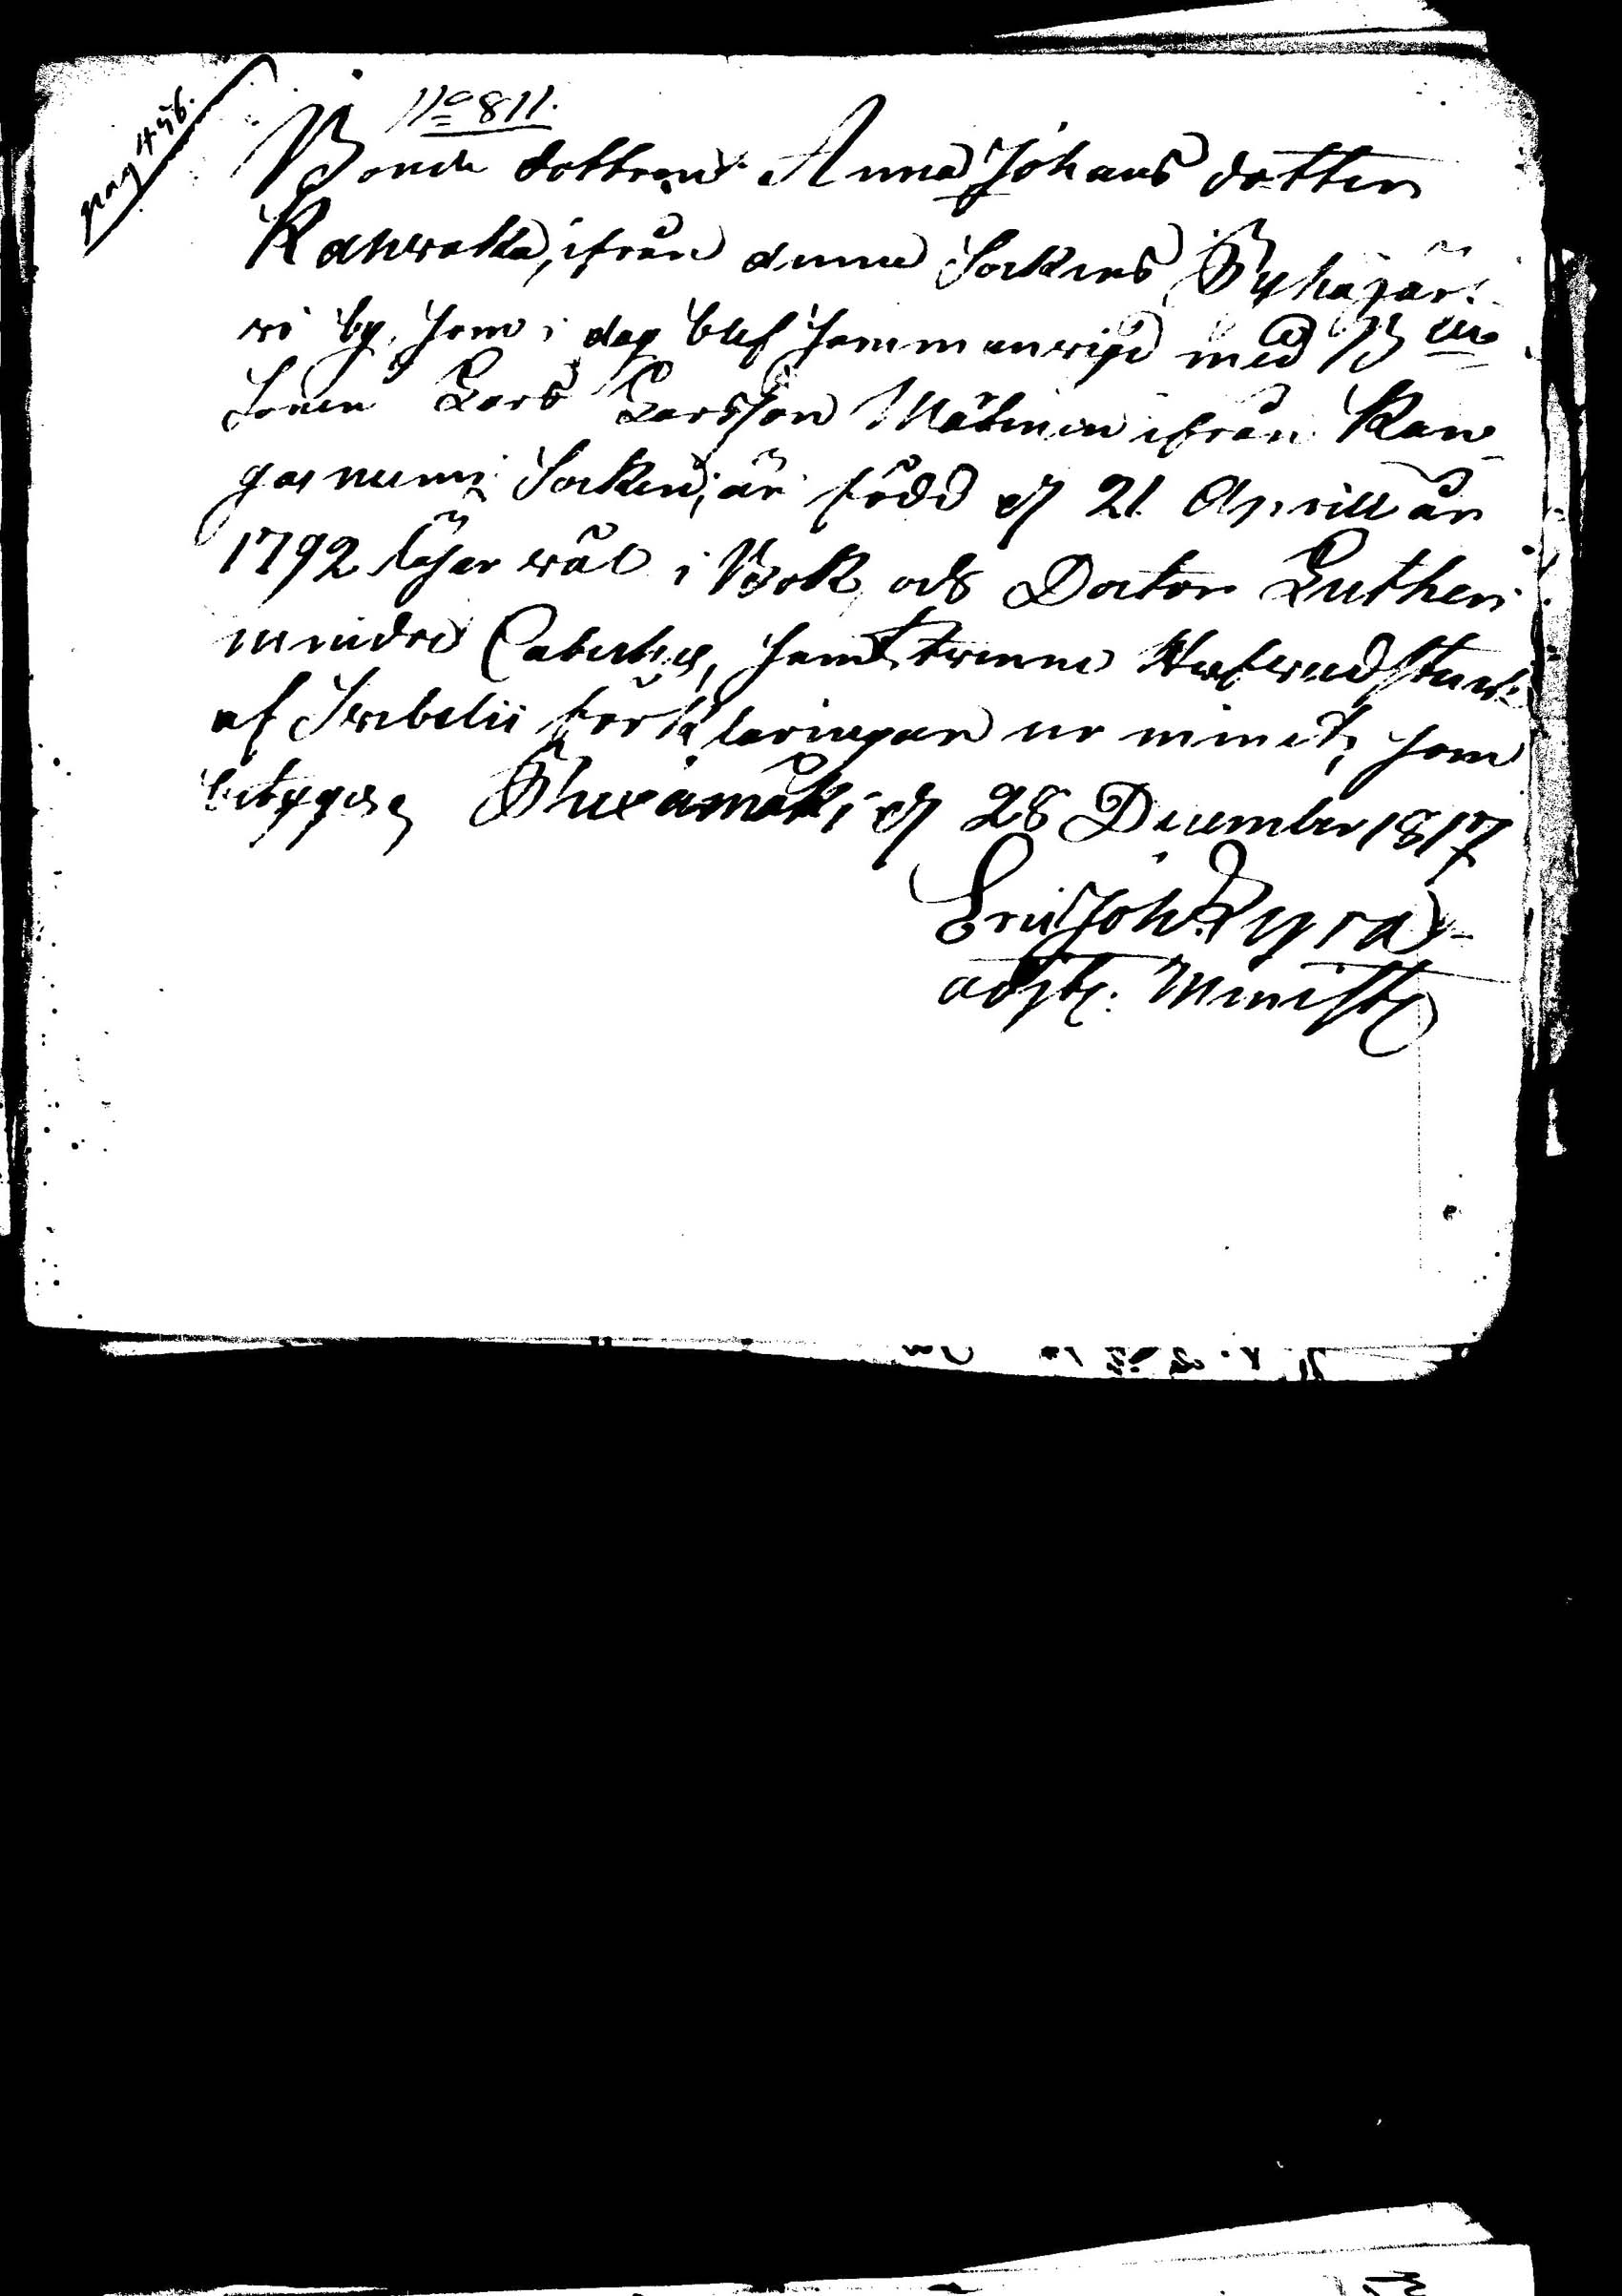 pag 496.
No 811.
Bonde dottren Anna Johans dotter
Kahwakka, ifrån denna Sockens Pyhäjär-
wi by, som i dag blef sammanwigd med B
Sonen Lars Larsson Mätinen ifrån Kan-
gasniemi Socken, är född d 21 Aprill år
1792 läser wäl i Bok och Doctor Lutheri
mindre Cateches, samt trenne Hufwudstuck
af Swebelii förklaringar ur minnet, som
betygas, d 28 December 1817
Eric Joh. Lyra
adjt. Minist